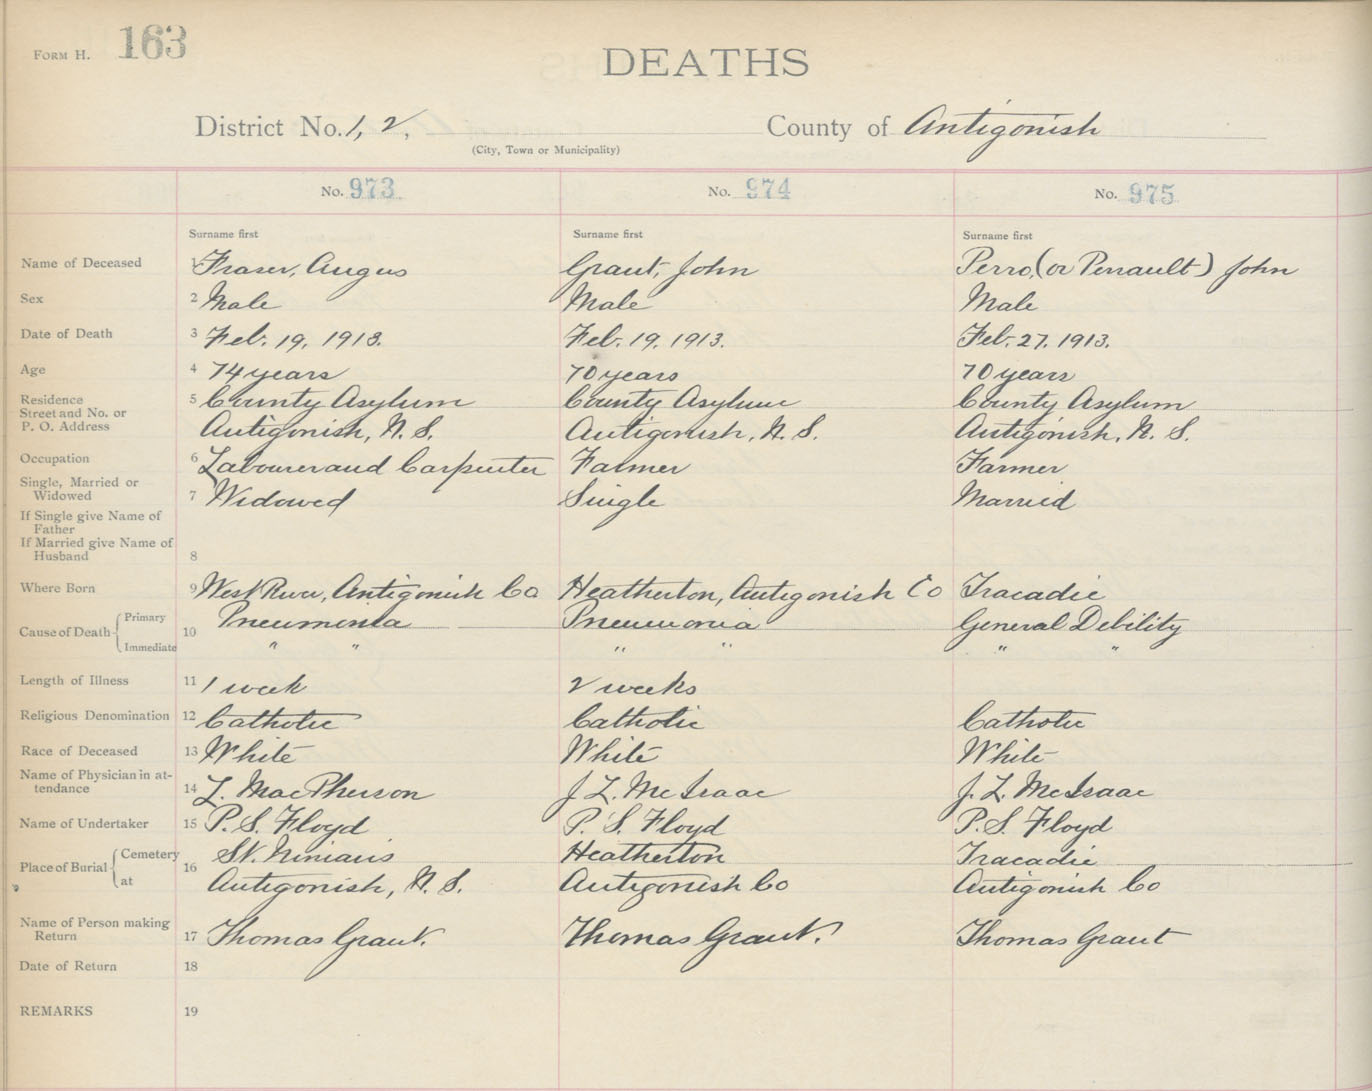 FORM H. 163
DEATHS
District No. 1, 2, County of Antigonish
(City, Town or Municipality)
No. 973 No. 974 No. 975
Surname first Surname first Surname first
Name of Deceased 1 Fraser, Angus Grant, John Perro, (or Perrault) John
Sex 2 Male Male Male
Date of Death 3 Feb. 19, 1913. Feb. 19. 1913. Feb. 27. 1913.
Age 4 74 years 70 years 70 years
Residence 5 County Asylum County Asylum County Asylum
Street and No. or
P. O. Address Antigonish, N. S. Antigonish, N. S. Antigonish, N. S.
Occupation 6 Labourer and Carpenter Farmer Farmer
Single, Married or
Widowed 7 Widowed Single Married
If Single give Name of
Father
If Married give Name of
Husband 8
Where Born 9 West River, Antigonish Co Heatherton, Antigonish Co Tracadie
Cause of Death Primary 10 Pneumonia Pneumonia General Debility
Immediate " " " " " "
Length of Illness 11 1 week 2 weeks
Religious Denomination 12 Catholic Catholic Catholic
Race of Deceased 13 White White White
Name of Physician in at-
tendance 14 L. MacPherson J L. McIsaac J. L. McIsaac
Name of Undertaker 15 P. S. Floyd P. S. Floyd P. S. Floyd
Place of Burial Cemetery 16 St. Ninian's Heatherton Tracadie
at Antigonish, N. S. Antigonish Co Antigonish Co
Name of Person making
Return 17 Thomas Grant. Thomas Grant. Thomas Grant
Date of Return 18
REMARKS 19